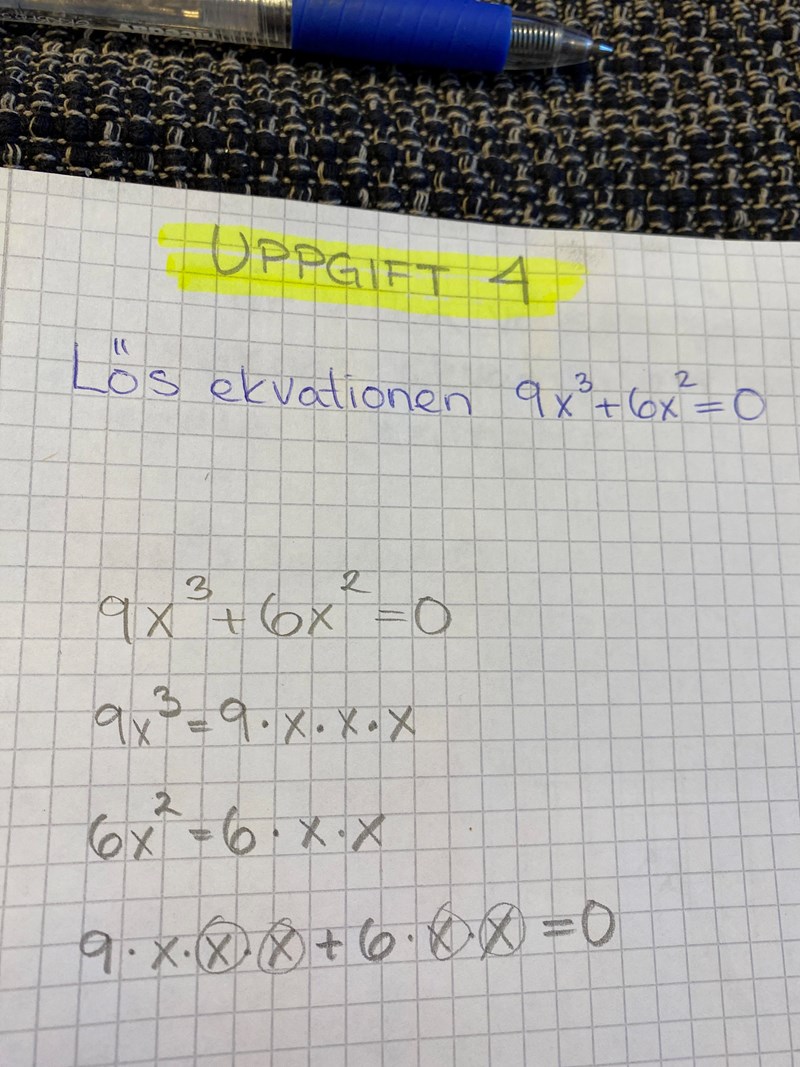 UPPGIFT 4
Lös ekvationen 9x³+6x²=0
9x³+6x²=0
9x³=9·x·x·x
6x²=6·x·x
9·x·x·x+6·x·x=0